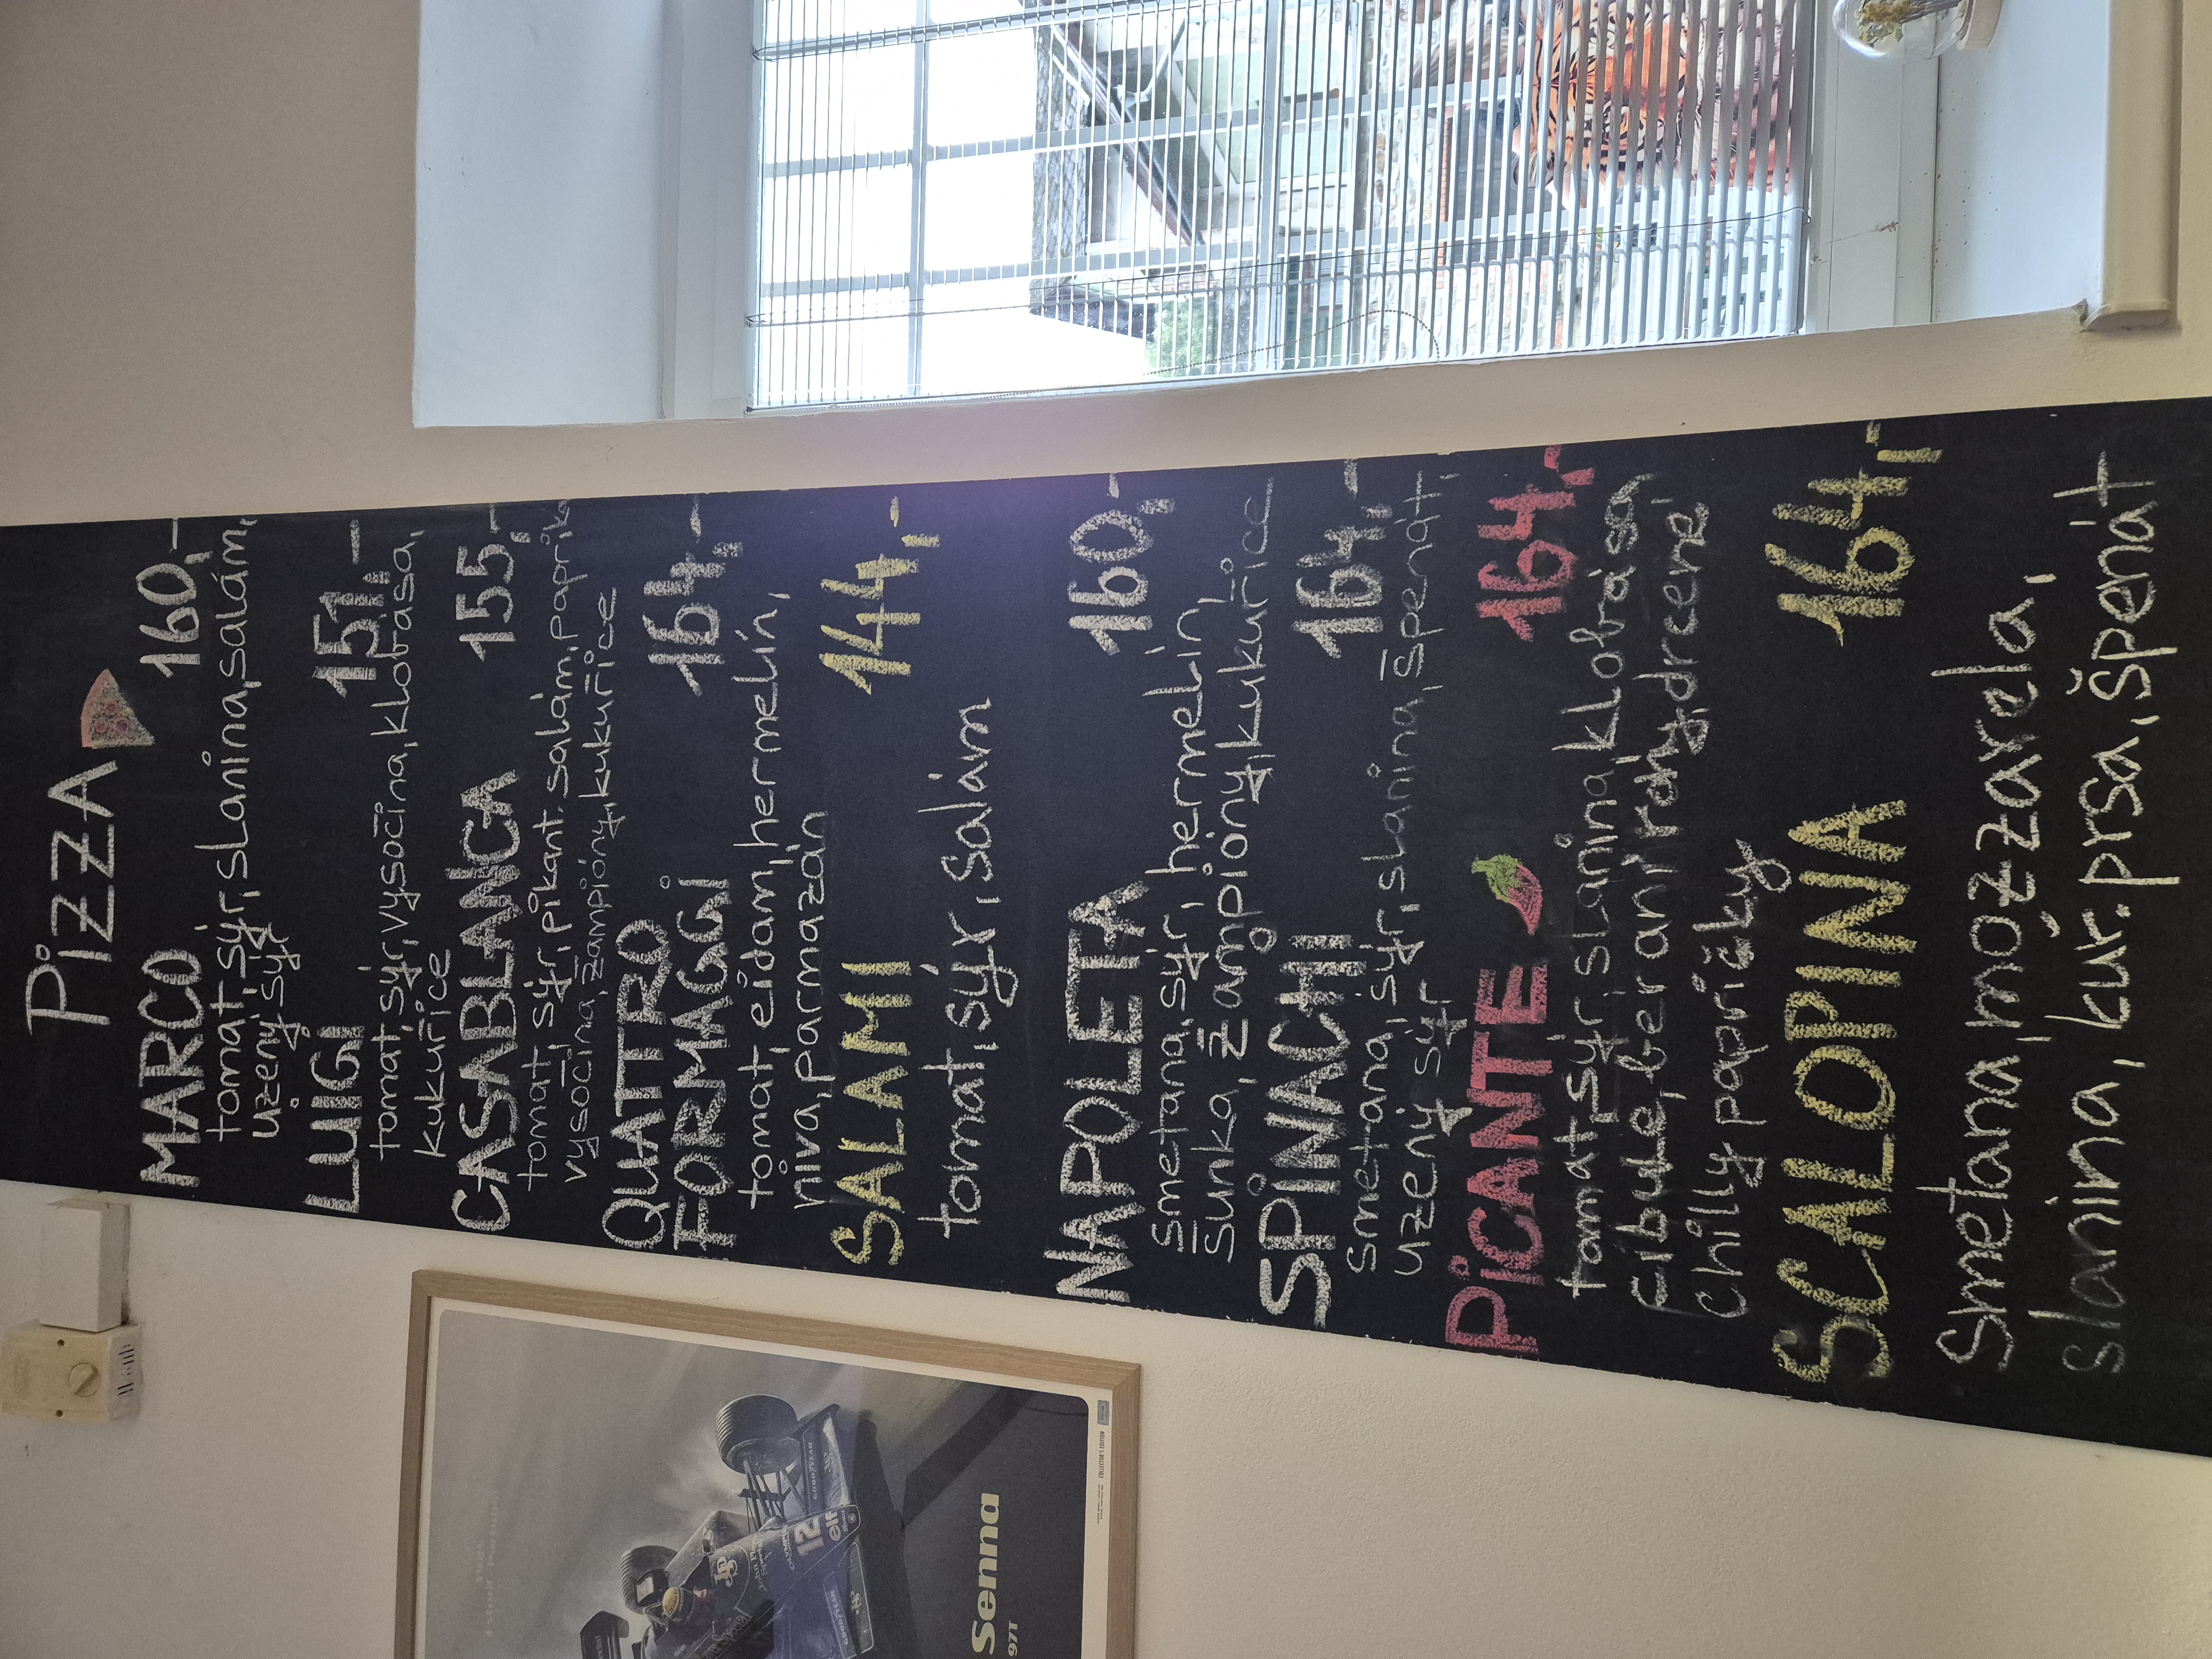 Pizza
MARCO 160,-
tomat, sýr, slanina, salám,
uzený sýr
LUIGI 151,-
tomat, sýr, vysočina, klobása,
kukuřice
CASABLANCA 155,-
tomat, sýr, pikant. salám, paprika
vysočina, žampióny, kukuřice
QUATTRO
FORMAGGi 164,-
tomat, eidam, hermelín,
niva, parmazán
SALAMI 144,-
tomat, sýr, salám
NAPOLETA 160,-
smetana, sýr, hermelín,
šunka, žampióny, kukuřice
SPINACHI 164,-
smetana, sýr, slanina, špenát,
uzený sýr
PiCANTE 164,-
tomat, sýr, slanina, klobása,
cibule, beraní rohy, drcené
chilly papričky
SCALOPINA 164,-
Smetana, mozzarela,
slanina, kuř. prsa, špenát
GOODYEAR
12
elf
Senna
97T